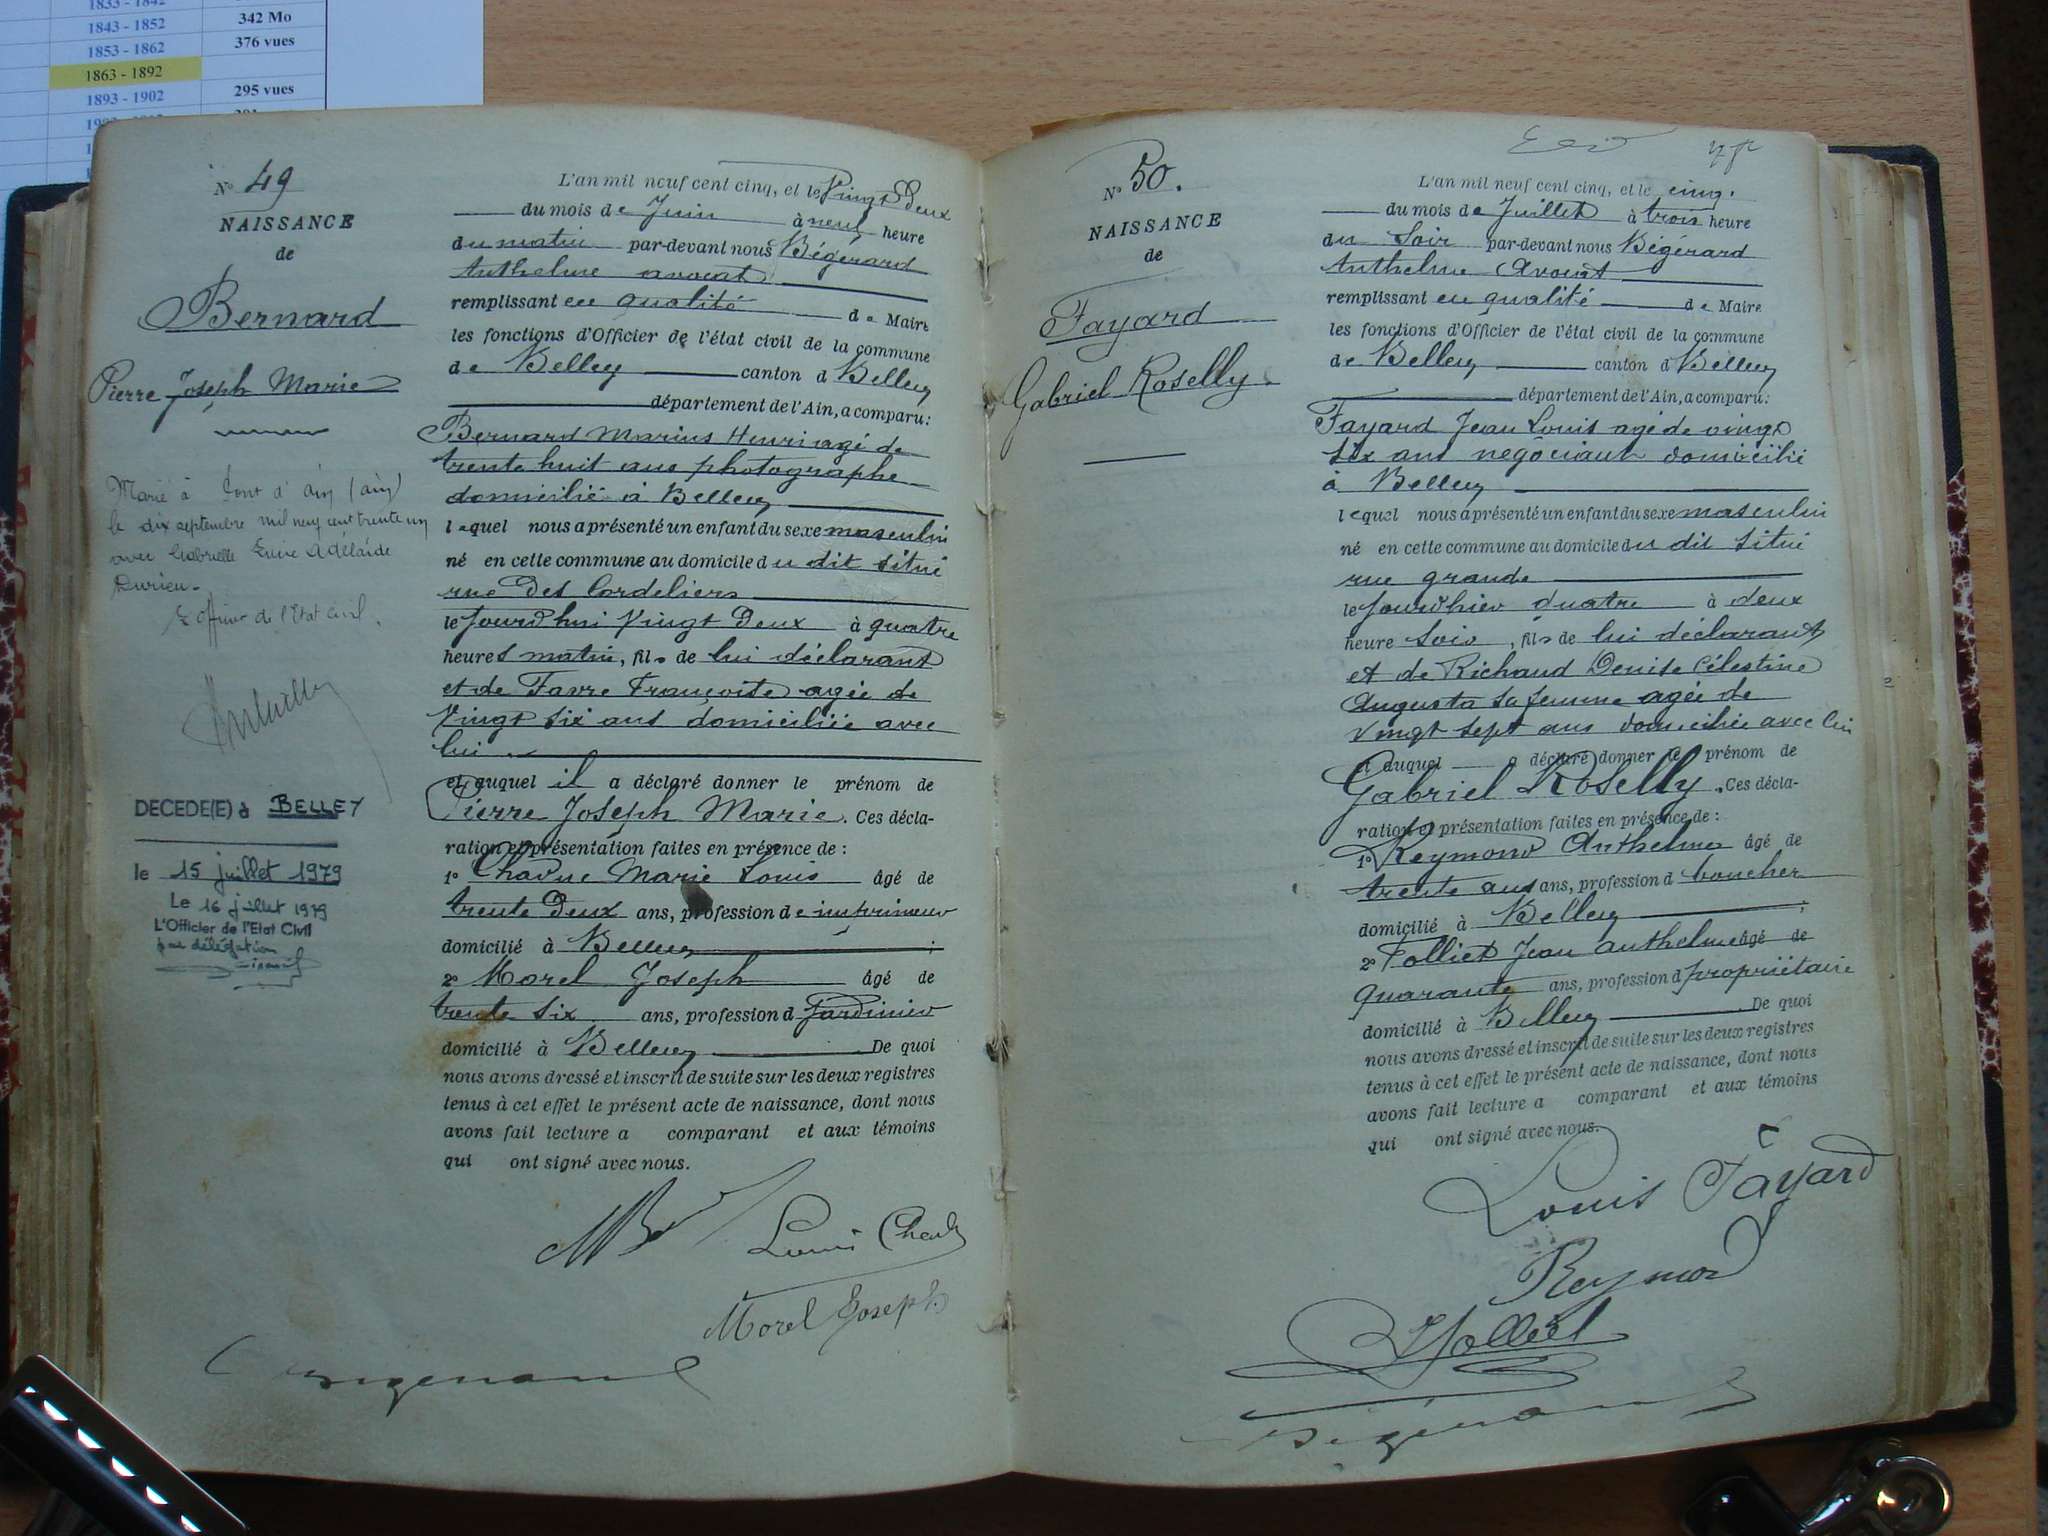 1833 - 1842
1843 - 1852
342 Mo
1853 - 1862
376 vues
1863 - 1892
1893 - 1902
295 vues
N° 49
NAISSANCE
de
Bernard
Pierre Joseph Marie
Marié à Pont d'ain (ain)
le dix septembre mil neuf cent trente un
avec Gabrielle Adélaïde
Durieu.
L'officier de l'Etat civil.
DECEDE(E) à BELLEY
le 15 juillet 1979
Le 16 juillet 1979
L'Officier de l'Etat Civil
par délégation
L'an mil neuf cent cinq, et le Vingt Deux
du mois de Juin à neuf heure
du matin par-devant nous Bégérard
Anthelme avocat
remplissant en qualité de Maire
les fonctions d'Officier de l'état civil de la commune
de Belley canton d Belley
département de l'Ain, a comparu:
Bernard Marius Henri agé de
trente huit ans photographe
domicilié à Belley
lequel nous a présenté un enfant du sexe masculin
né en cette commune au domicile du dit situé
rue Des Cordeliers
le Jourd'hui Vingt Deux à quatre
heures matin, fils de lui déclarant
et de Favre Françoise agée de
Vingt six ans domiciliée avec
lui
et auquel il a déclaré donner le prénom de
Pierre Joseph Marie. Ces décla-
ration et présentation faites en présence de :
1° Chaduc Marie Louis âgé de
trente Deux ans, profession de imprimeur
domicilié à Belley ;
2° Morel Joseph âgé de
trente six ans, profession d Jardinier
domicilié à Belley De quoi
nous avons dressé et inscrit de suite sur les deux registres
tenus à cet effet le présent acte de naissance, dont nous
avons fait lecture a comparant et aux témoins
qui ont signé avec nous.
Morel Joseph
N° 50.
NAISSANCE
de
Fayard
Gabriel Roselly
L'an mil neuf cent cinq, et le cinq.
du mois de Juillet à trois heure
du Soir par-devant nous Bégérard
Anthelme Avocat
remplissant en qualité de Maire
les fonctions d'Officier de l'état civil de la commune
de Belley canton d Belley
département de l'Ain, a comparu:
Fayard Jean Louis agé de vingt
six ans négociant domicilié
à Belley
lequel nous a présenté un enfant du sexe masculin
né en cette commune au domicile du dit situé
rue grande
le Jourd'hier quatre à deux
heure soir, fils de lui déclarant
et de Richaud Denise Célestine
Augusta sa femme agée de
vingt sept ans domiciliée avec lui
et auquel a déclaré donner le prénom de
Gabriel Roselly. Ces décla-
ration et présentation faites en présence de :
1° Reymond Anthelme âgé de
trente ans ans, profession d boucher
domicilié à Belley ;
2° Tolliet Jean Anthelme âgé de
quarante ans, profession d propriétaire
domicilié à Belley De quoi
nous avons dressé et inscrit de suite sur les deux registres
tenus à cet effet le présent acte de naissance, dont nous
avons fait lecture a comparant et aux témoins
qui ont signé avec nous.
Louis Fayard
Reymond